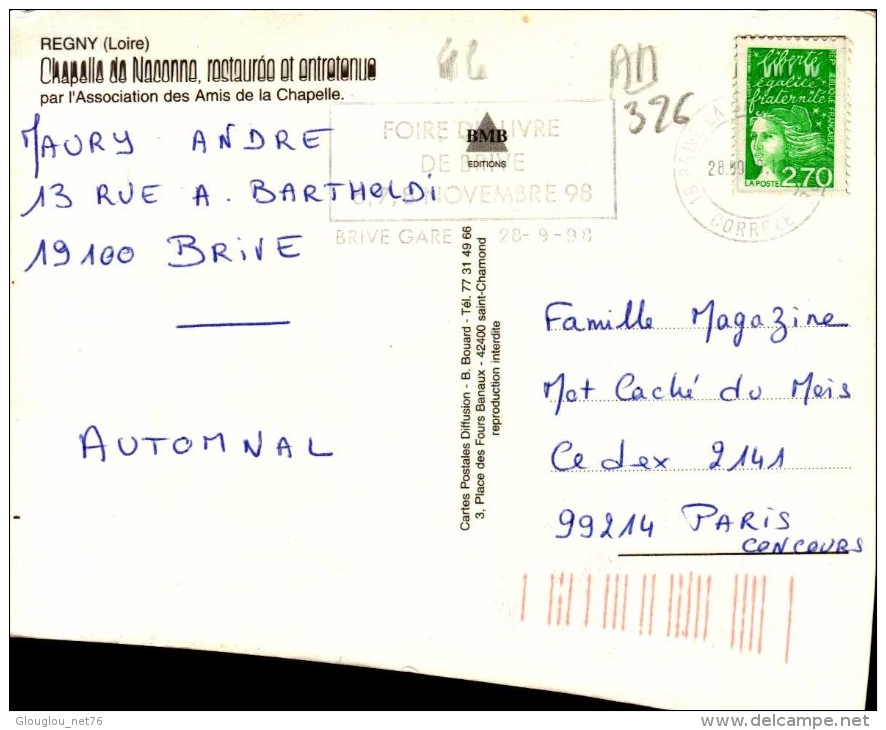 REGNY (Loire)
Chapelle de Naconne, restaurée et entretenue
par l'Association des Amis de la Chapelle.
MAURY ANDRE
13 RUE A. BARTHOLDI
19100 BRIVE
AUTOMNAL
AD
326
FOIRE DU LIVRE
DE BRIVE
NOVEMBRE 98
BRIVE GARE 28-9-98
BMB
EDITIONS
CORREZE
liberté
égalité
fraternité
REPUBLIQUE FRANÇAISE
LA POSTE 2,70
Cartes Postales Diffusion - B. Bouard - Tél. 77 31 49 66
3, Place des Fours Banaux - 42400 saint-Chamond
reproduction interdite
Famille Magazine
Mot Caché du Mois
Cedex 2141
99214 PARIS
CONCOURS
Glouglou_net76
delcampe.net